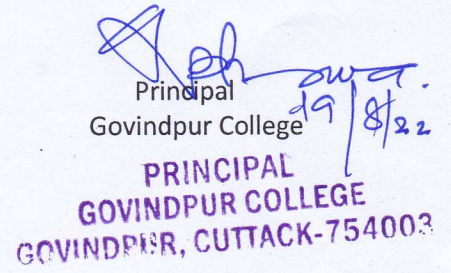 Principal
19/8/22
Govindpur College
PRINCIPAL
GOVINDPUR COLLEGE
GOVINDPUR, CUTTACK-754003